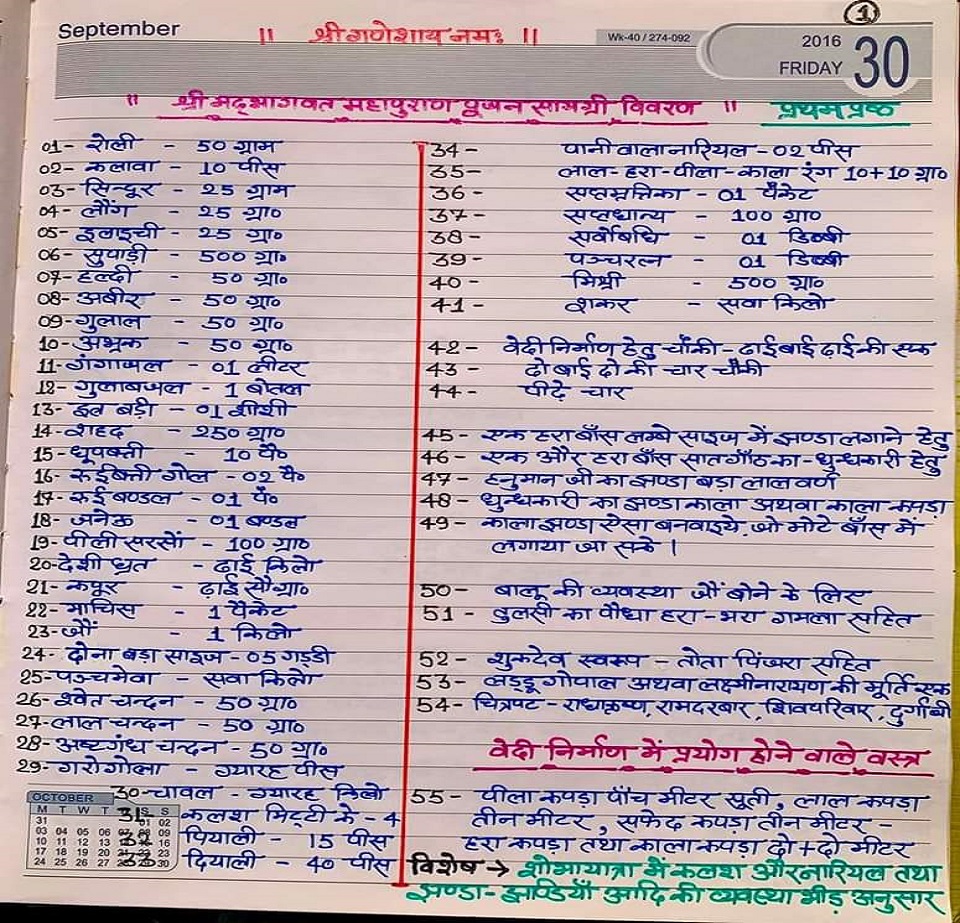 September
॥ श्री गणेशाय नमः ॥
Wk-40 / 274-092
2016
FRIDAY 30
1
॥ श्री मद्भागवत महापुराण पूजन सामग्री विवरण ॥ प्रथम प्रष्ठ
01- रोली - 50 ग्राम
02- कलावा - 10 पीस
03- सिन्दूर - 25 ग्राम
04- लौंग - 25 ग्रा०
05- इलाइची - 25 ग्रा०
06- सुपाड़ी - 500 ग्रा०
07- हल्दी - 50 ग्रा०
08- अबीर - 50 ग्रा०
09- गुलाल - 50 ग्रा०
10- अभ्रक - 50 ग्रा०
11- गंगाजल - 01 लीटर
12- गुलाबजल - 1 बोतल
13- इत्र बड़ी - 01 शीशी
14- शहद - 250 ग्रा०
15- धूपबत्ती - 10 पै०
16- रुईबत्ती गोल - 02 पै०
17- रुई बण्डल - 01 पै०
18- जनेऊ - 01 बण्डल
19- पीली सरसों - 100 ग्रा०
20- देशी घ्रत - ढाई किलो
21- कपूर - ढ़ाई सौ ग्रा०
22- माचिस - 1 पैकेट
23- जौं - 1 किलो
24- दोना बड़ा साइज - 05 गड्डी
25- पञ्चमेवा - सवा किलो
26- श्वेत चन्दन - 50 ग्रा०
27- लाल चन्दन - 50 ग्रा०
28- अष्टगंध चन्दन - 50 ग्रा०
29- गरीगोला - ग्यारह पीस
30- चावल - ग्यारह किलो
31- कलश मिट्टी के - 4
32- पियाली - 15 पीस
33- दियाली - 40 पीस
OCTOBER
M T W T F S S
31 01 02
03 04 05 06 07 08 09
10 11 12 13 14 15 16
17 18 19 20 21 22 23
24 25 26 27 28 29 30
34- पानी वाला नारियल - 02 पीस
35- लाल-हरा-पीला-काला रंग 10+10 ग्रा०
36- सप्तम्रत्तिका - 01 पैकेट
37- सप्तधान्य - 100 ग्रा०
38- सर्वोषधि - 01 डिब्बी
39- पञ्चरत्न - 01 डिब्बी
40- मिश्री - 500 ग्रा०
41- शकर - सवा किलो
42- वेदी निर्माण हेतु चौकी - ढाई बाई ढाई की एक
43- दो बाई दो की चार चौकी
44- पीढ़े चार
45- एक हरा बाँस लम्बे साइज में झण्डा लगाने हेतु
46- एक और हरा बाँस सात गाँठ का - धुन्धकारी हेतु
47- हनुमान जी का झण्डा बड़ा लाल वर्ण
48- धुन्धकारी का झण्डा काला अथवा काला कपड़ा
49- काला झण्डा ऐसा बनवाइये, जो मोटे बाँस में
लगाया जा सके।
50- बालू की व्यवस्था जौं बोने के लिए
51- तुलसी का पौधा हरा-भरा गमला सहित
52- शुकदेव स्वरूप - तोता पिंजरा सहित
53- लड्डू गोपाल अथवा लक्ष्मीनारायण की मूर्ति एक
54- चित्रपट - राधाकृष्ण, रामदरबार, शिवपरिवार, दुर्गाजी
वेदी निर्माण में प्रयोग होने वाले वस्त्र
55- पीला कपड़ा पाँच मीटर सूती, लाल कपड़ा
तीन मीटर, सफेद कपड़ा तीन मीटर -
हरा कपड़ा तथा काला कपड़ा दो+दो मीटर
विशेष → शोभायात्रा में कलश और नारियल तथा
झण्डा-झण्डियाँ आदि की व्यवस्था भीड़ अनुसार